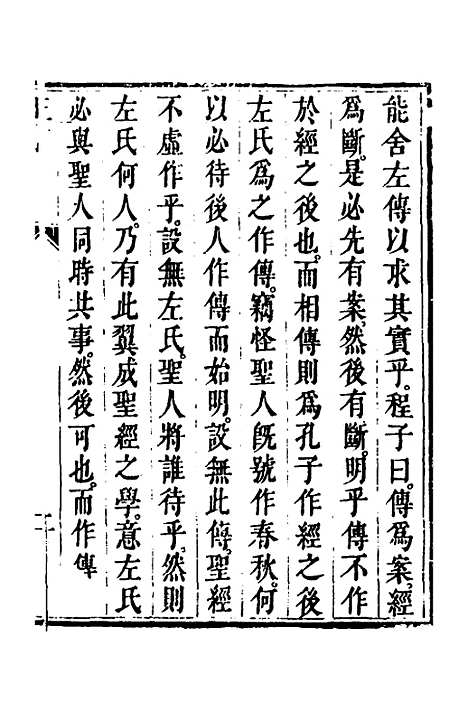 能舍左傳以求其實乎。程子曰。傳爲案。經
爲斷。是必先有案。然後有斷。明乎傳不作
於經之後也。而相傳則爲孔子作經之後
左氏爲之作傳。竊怪聖人旣號作春秋。何
以必待後人作傳而始明。設無此傳。聖經
不虛作乎。設無左氏。聖人將誰待乎。然則
左氏何人。乃有此翼成聖經之學。意左氏
必與聖人同時共事。然後可也。而作傳